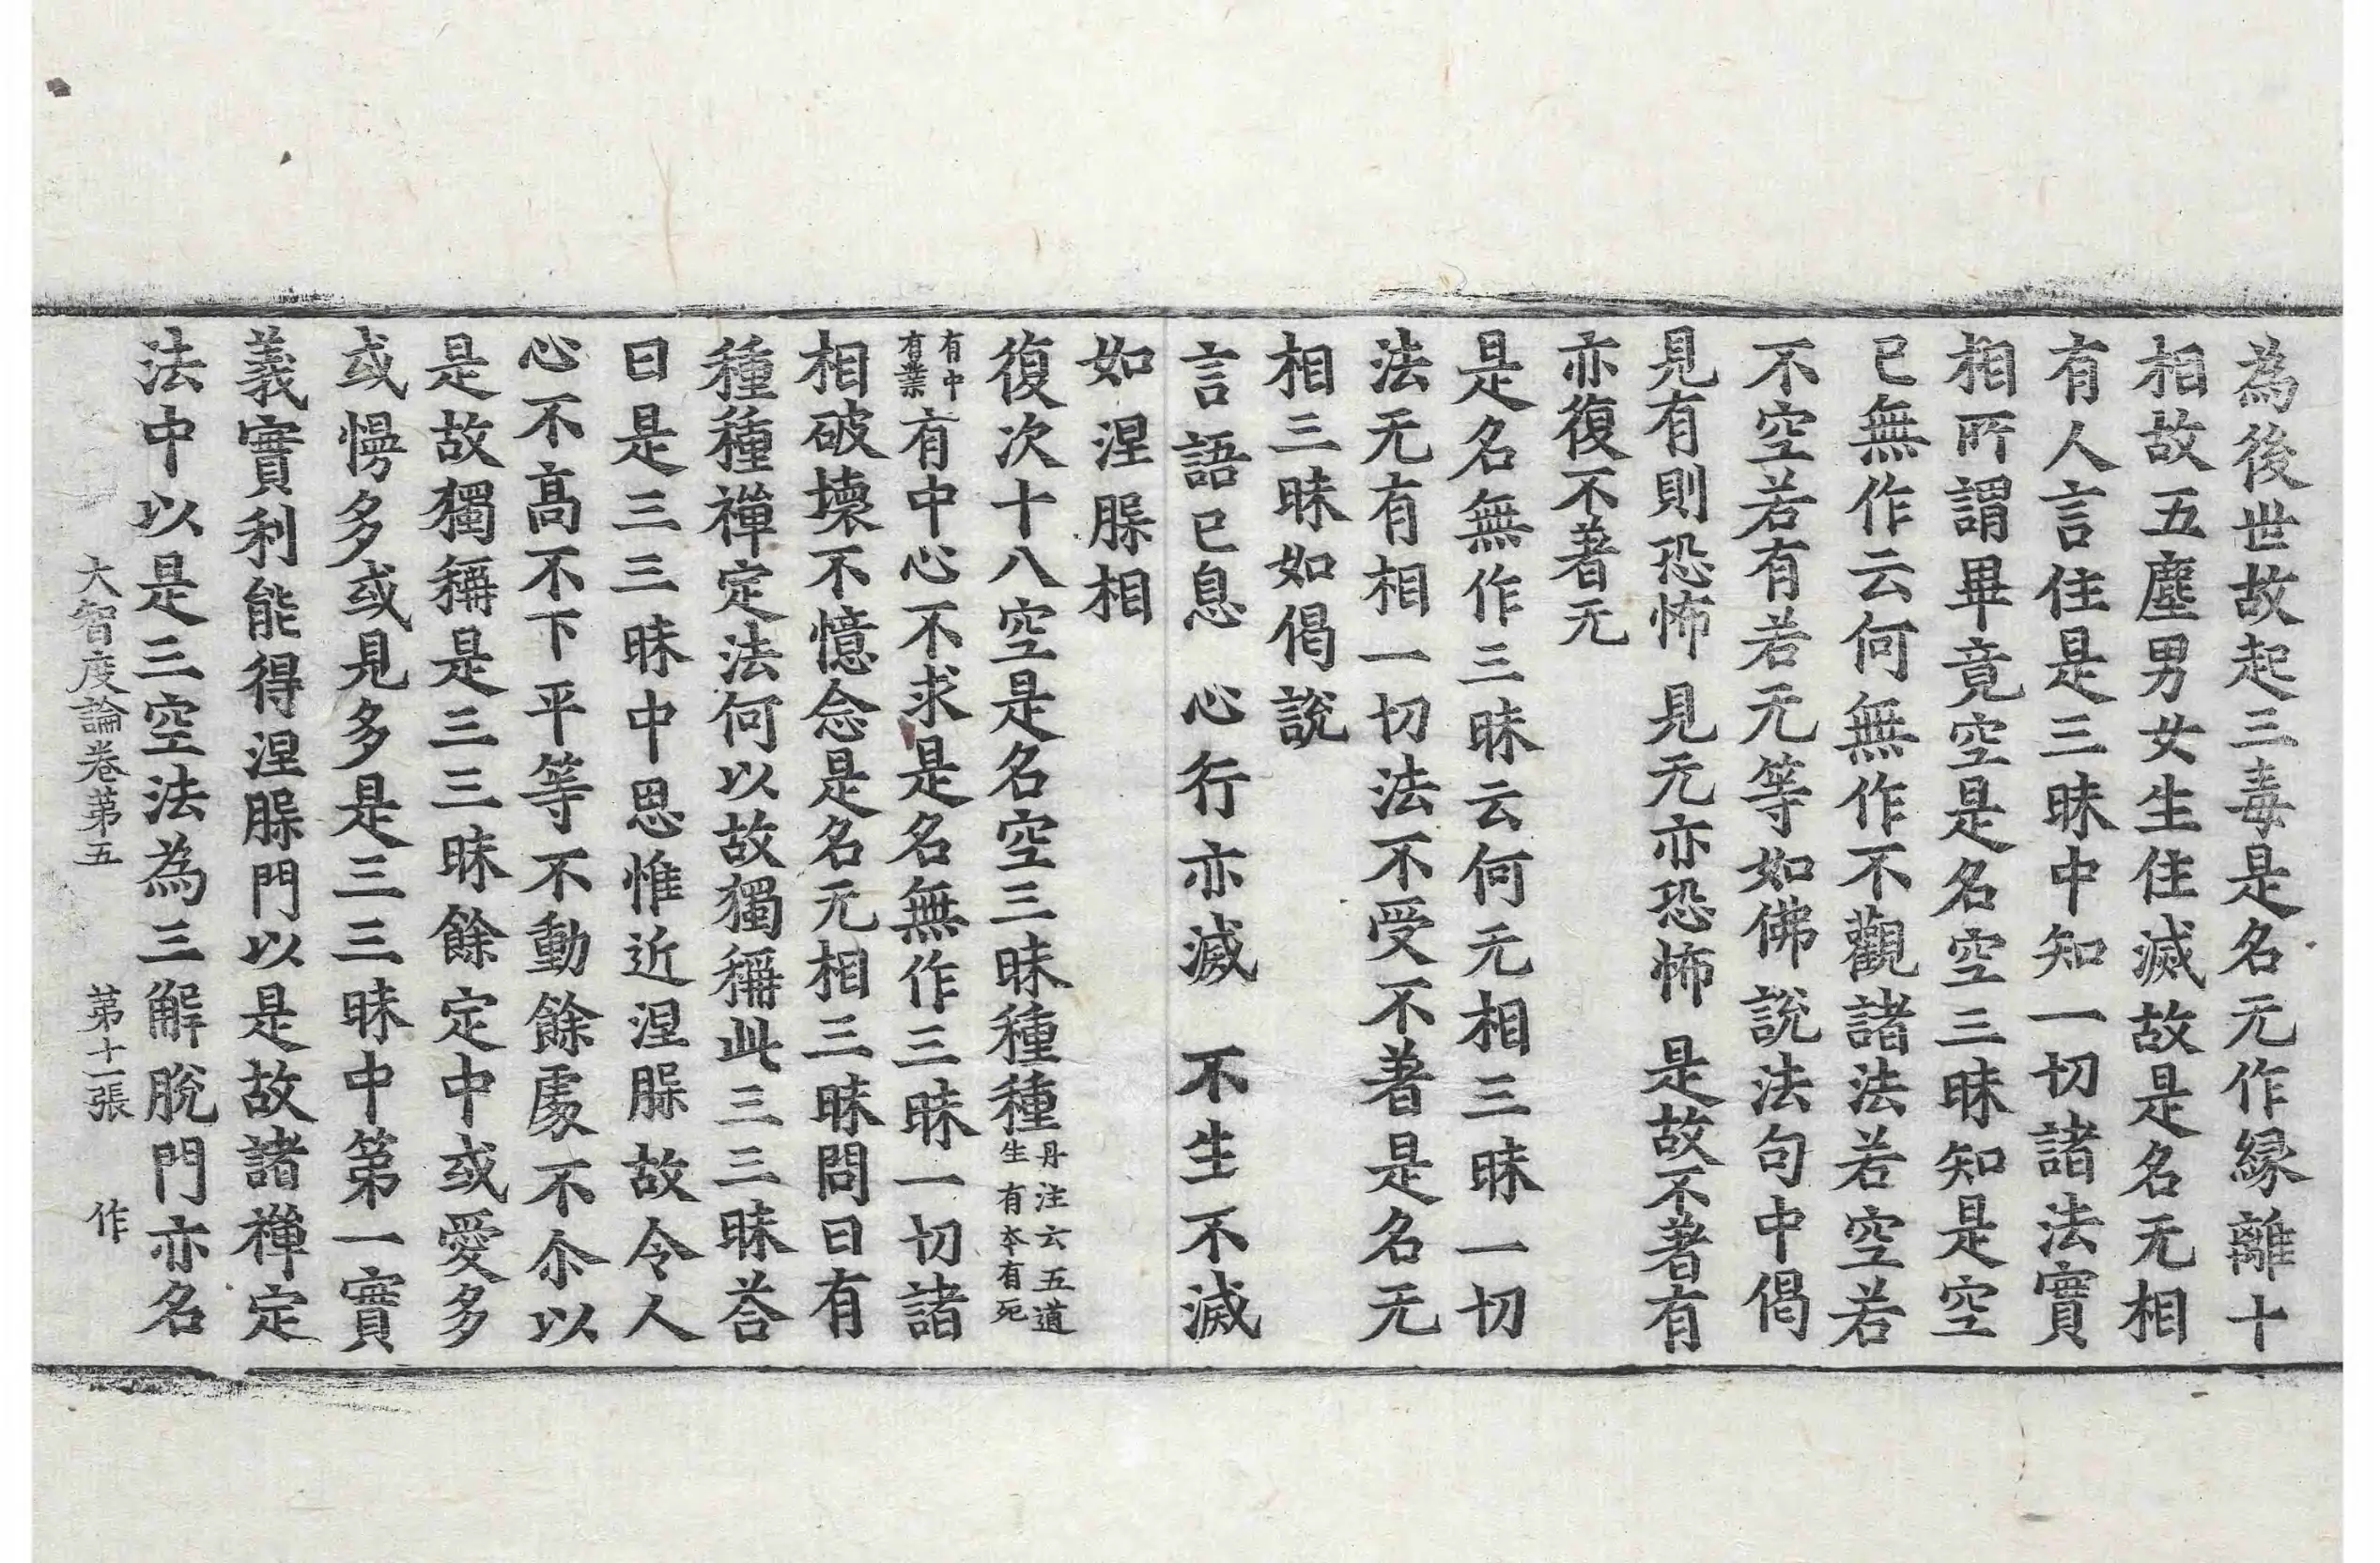 為後世故起三毒是名无作緣離十
相故五塵男女生住滅故是名无相
有人言住是三昧中知一切諸法實
相所謂畢竟空是名空三昧知是空
已無作云何無作不觀諸法若空若
不空若有若无等如佛說法句中偈
見有則恐怖 見无亦恐怖 是故不著有
亦復不著无
是名無作三昧云何无相三昧一切
法无有相一切法不受不著是名无
相三昧如偈說
言語已息 心行亦滅 不生不滅
如涅𣵀相
復次十八空是名空三昧種種丹注云五道生有夲有死
有中有業有中心不求是名無作三昧一切諸
相破壞不憶念是名无相三昧問曰有
種種禪定法何以故獨稱此三三昧荅
曰是三三昧中思惟近涅𣵀故令人
心不高不下平等不動餘處不尒以
是故獨稱是三三昧餘定中或愛多
或慢多或見多是三三昧中第一實
義實利能得涅𣵀門以是故諸禪定
法中以是三空法為三解脫門亦名
大智度論卷苐五 苐十一張 作